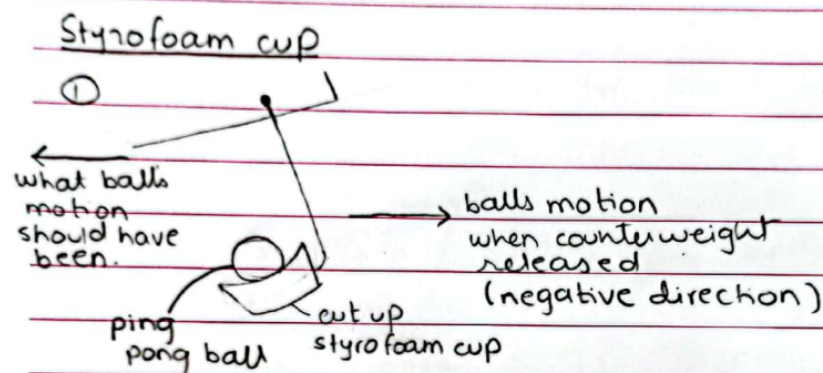 Styrofoam cup
①
what balls
motion
should have
been.
balls motion
when counterweight
released
(negative direction)
ping
pong ball
cut up
styrofoam cup